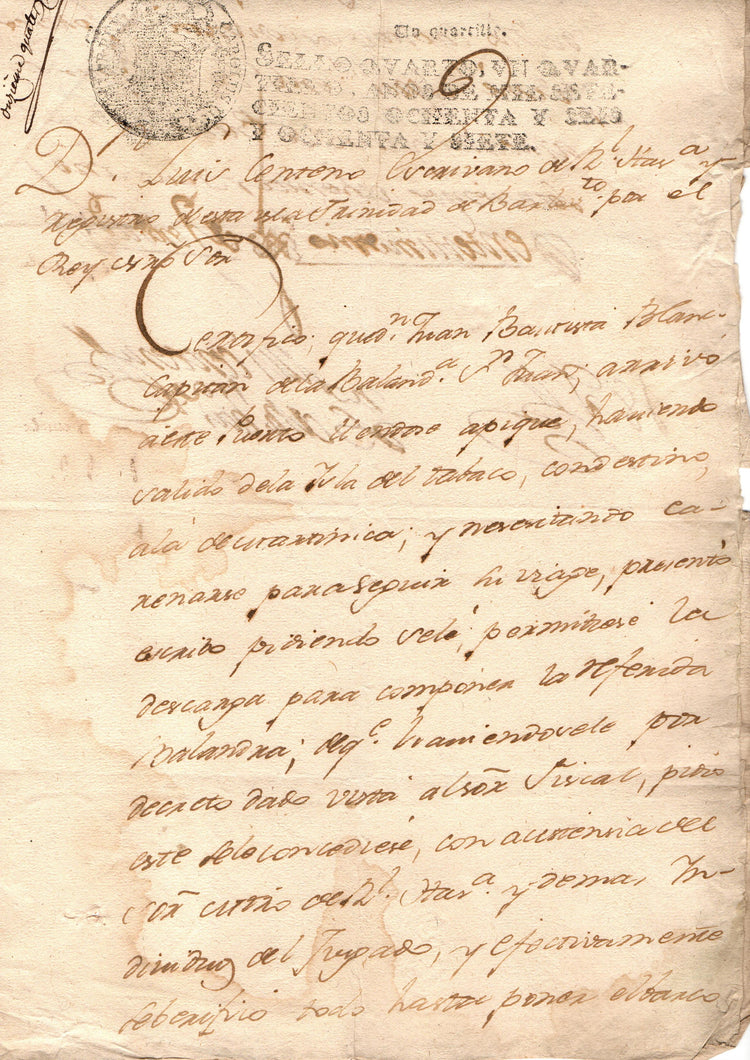 Un quartillo.
SELLO QVARTO, VN QVAR-
TILLO, AÑOS DE MIL SETE-
CIENTOS OCHENTA Y SEIS
Y OCHENTA Y SIETE.
Dn. Luis Centeno Escrivano de Rl. Haza. y
registro desta ysla Trinidad de Barlto. por el
Rey nro Sor.
Certifico, que dn. Juan Bautista Blanc-
Capitan de la Balanda. Sn. Juan, arrivó
á este Puerto llendose apique, haviendo
salido dela Ysla del tabaco, con destino,
alá de Martinica; y nesesitando ca-
renarse para seguir su viage, presentó
escrito pidiendo sele permitiese la
descarga para componer la referida
Balandra; de qe. haviendosele por
decreto dado vista al sor. Fiscal, pidio
este sele concediese, con asistensia del
Sor. mtro de Rl. Haza. y demas In-
dividuos del Jusgado, y efectivamente
se berifico todo hasta poner el barco